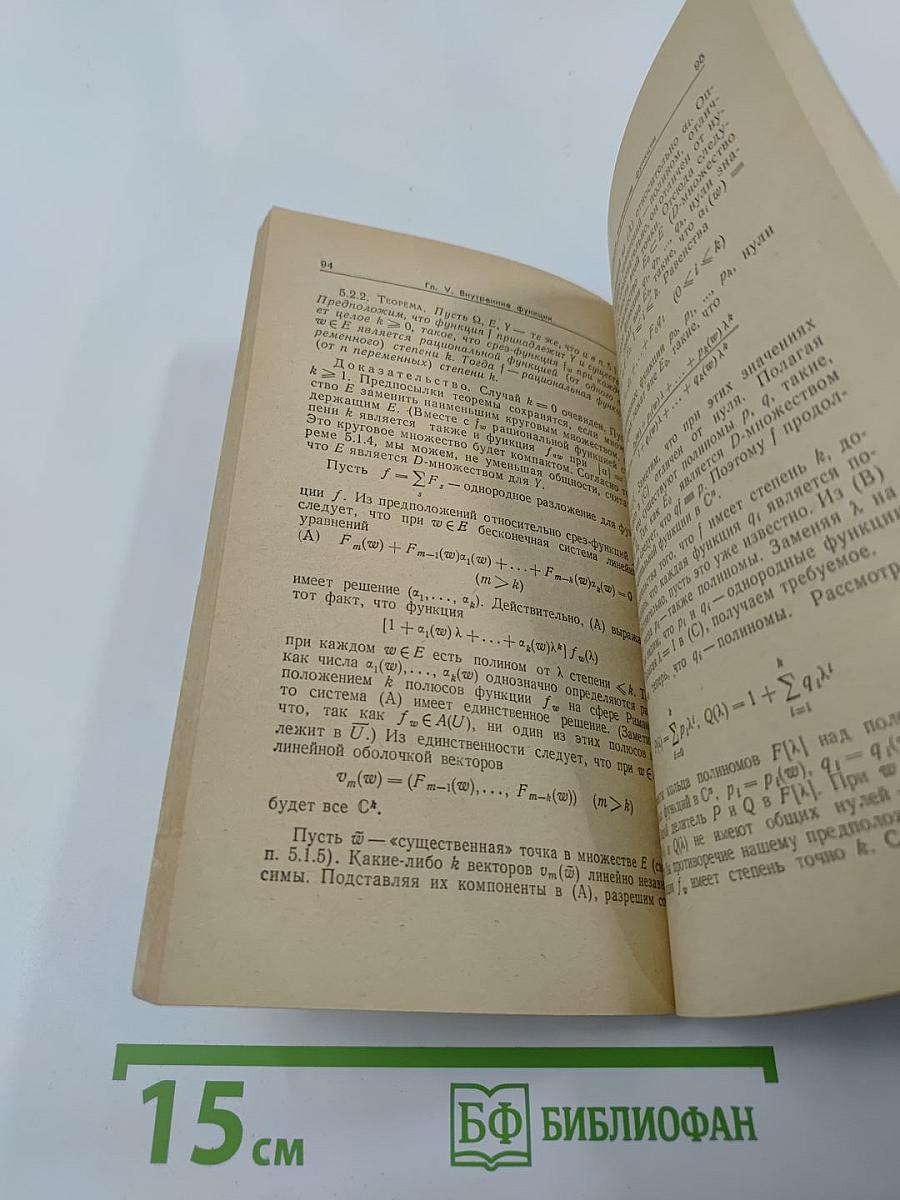 94
Гл. V. Внутренние функции
5.2.2. Теорема. Пусть Ω, E, Y — те же, что и в п. 5.1
Предположим, что функция f принадлежит Y и существу-
ет целое k ⩾ 0, такое, что срез-функция f_w при каждом
w ∈ E является рациональной функцией (от одного
ременного) степени k. Тогда f — рациональная функция
(от n переменных) степени k.
Доказательство. Случай k = 0 очевиден. Пусть
k ⩾ 1. Предпосылки теоремы сохранятся, если множе-
ство E заменить наименьшим круговым множеством,
держащим E. (Вместе с f_w рациональной функцией
пени k является также и функция f_{αw} при |α| =
Это круговое множество будет компактом. Согласно
реме 5.1.4, мы можем, не уменьшая общности, счита
что E является D-множеством для Y.
Пусть f = ∑_s F_s — однородное разложение для фун
ции f. Из предположений относительно срез-функций
следует, что при w ∈ E бесконечная система линейн
уравнений
(A) F_m(w) + F_{m−1}(w)α_1(w) + ... + F_{m−k}(w)α_k(w) = 0
(m > k)
имеет решение (α_1, ..., α_k). Действительно, (A) выража
тот факт, что функция
[1 + α_1(w) λ + ... + α_k(w)λ^k] f_w(λ)
при каждом w ∈ E есть полином от λ степени ⩽ k. Т
как числа α_1(w), ..., α_k(w) однозначно определяются ра
положением k полюсов функции f_w на сфере Рима
то система (A) имеет единственное решение. (Замети
что, так как f_w ∈ A(U), ни один из этих полюсов
лежит в U̅.) Из единственности следует, что при w ∈
линейной оболочкой векторов
v_m(w) = (F_{m−1}(w), ..., F_{m−k}(w)) (m > k)
будет все ℂ^k.
Пусть w̃ — «существенная» точка в множестве E (см
п. 5.1.5). Какие-либо k векторов v_m(w̃) линейно незави
симы. Подставляя их компоненты в (A), разрешим
95
относительно α_i. Оп-
полином, отлич-
он отличен от ну-
Отсюда следу-
E_0 ⊂ E (D-множество
нули зна-
такие, что α_i(w) =
Равенства
(0 ⩽ i ⩽ k)
функции p_0, p_1, ..., p_k, нули
такие, что
+ ... + p_k(w) λ^k
+ ... + q_k(w) λ^k
что при этих значениях
отличен от нуля. Полагая
существуют полиномы p, q, такие,
так как E_0 является D-множеством
что qf = p. Поэтому f продол-
функции в ℂ^n.
того, что f имеет степень k, до-
что каждая функция q_i является по-
пусть это уже известно. Из (B)
p_i — также полиномы. Заменяя λ на
что p_i и q_i — однородные функции
λ = 1 в (C), получаем требуемое.
теперь, что q_i — полиномы. Рассмотр
= ∑_{i=0}^k p_i λ^i, Q(λ) = 1 + ∑_{i=1}^k q_i λ^i
кольца полиномов F[λ] над поле
функций в ℂ^n, p_i = p_i(w), q_i = q_i(w
делитель P и Q в F[λ]. При w
и Q(λ) не имеют общих нулей
противоречие нашему предполож
f_w имеет степень точно k. С
15 см
БФ БИБЛИОФАН